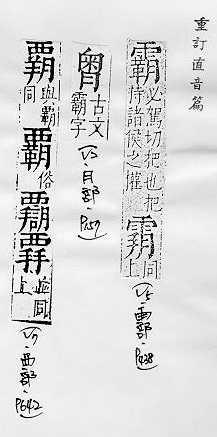 重訂直音篇
霸必駕切把也把
持諸侯之權
同上
(V5.雨部.P428)
古文
霸字
(V3.月部.
覇與霸同
覇俗
並同上
(V7.西部.P642)